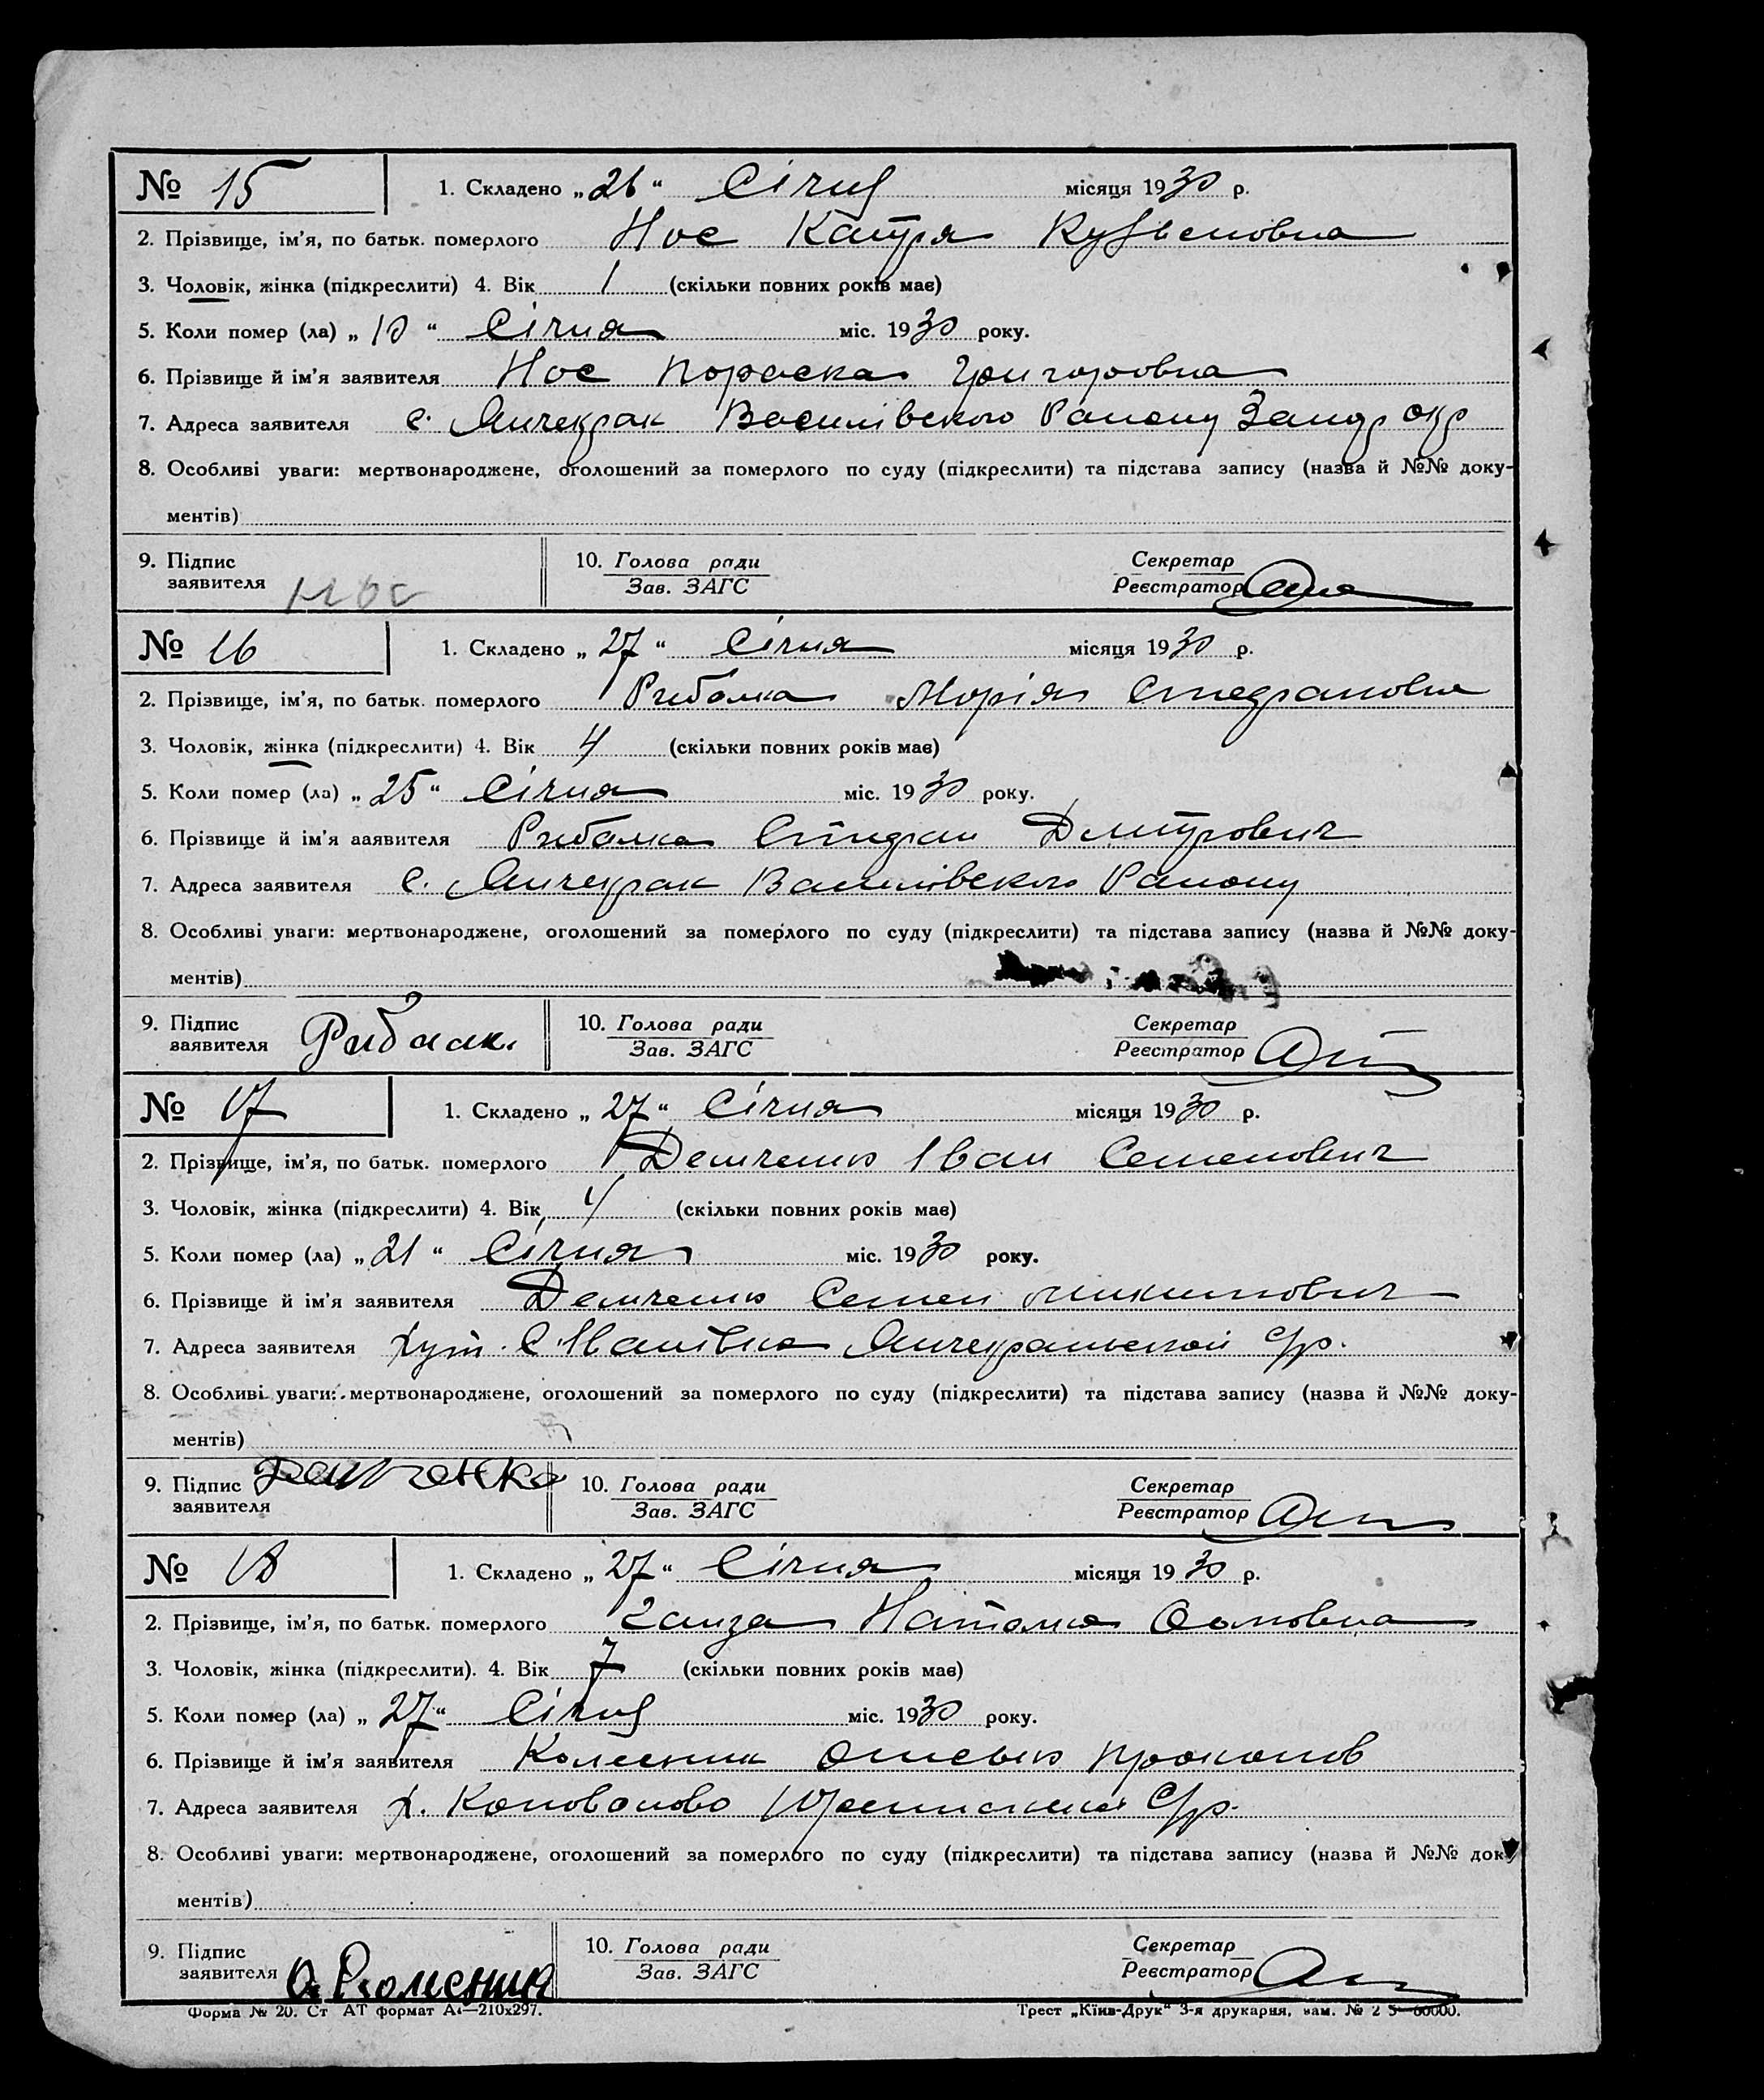 № 15 1. Складено „26“ Січня місяця 1930 р.
2. Прізвище, ім’я, по батьк. померлого Нос Катря
3. Чоловік, жінка (підкреслити) 4. Вік 1 (скільки повних років має)
5. Коли помер (ла) „10“ Січня міс. 1930 року.
6. Прізвище й ім’я заявителя Нос Пораска Григоровна
7. Адреса заявителя с. Янчекрак Василівського Району Запор окр
8. Особливі уваги: мертвонароджене, оголошений за померлого по суду (підкреслити) та підстава запису (назва й №№ доку-
ментів)
9. Підпис заявителя Нос 10. Голова ради Секретар
Зав. ЗАГС Реєстратор
№ 16 1. Складено „27“ Січня місяця 1930 р.
2. Прізвище, ім’я, по батьк. померлого Рибалка Марія Степановна
3. Чоловік, жінка (підкреслити) 4. Вік 4 (скільки повних років має)
5. Коли помер (ла) „25“ Січня міс. 1930 року.
6. Прізвище й ім’я заявителя Рибалка Степан Дмитрович
7. Адреса заявителя с. Янчекрак Василівського Району
8. Особливі уваги: мертвонароджене, оголошений за померлого по суду (підкреслити) та підстава запису (назва й №№ доку-
ментів)
9. Підпис заявителя Рибалка 10. Голова ради Секретар
Зав. ЗАГС Реєстратор
№ 17 1. Складено „27“ Січня місяця 1930 р.
2. Прізвище, ім’я, по батьк. померлого Демченко Іван Семенович
3. Чоловік, жінка (підкреслити) 4. Вік 4 (скільки повних років має)
5. Коли помер (ла) „21“ Січня міс. 1930 року.
6. Прізвище й ім’я заявителя Демченко Семен
7. Адреса заявителя хут. Янчекракської с/р.
8. Особливі уваги: мертвонароджене, оголошений за померлого по суду (підкреслити) та підстава запису (назва й №№ доку-
ментів)
9. Підпис заявителя Демченко 10. Голова ради Секретар
Зав. ЗАГС Реєстратор
№ 18 1. Складено „27“ Січня місяця 1930 р.
2. Прізвище, ім’я, по батьк. померлого Наталка
3. Чоловік, жінка (підкреслити). 4. Вік 7 (скільки повних років має)
5. Коли помер (ла) „27“ Січня міс. 1930 року.
6. Прізвище й ім’я заявителя Колесник Прокопов
7. Адреса заявителя х. Коновалово с/р.
8. Особливі уваги: мертвонароджене, оголошений за померлого по суду (підкреслити) та підстава запису (назва й №№ доку-
ментів)
9. Підпис заявителя 10. Голова ради Секретар
Зав. ЗАГС Реєстратор
Форма № 20. Ст АТ формат А4—210х297. Трест „Київ-Друк“ 3-я друкарня, зам. №